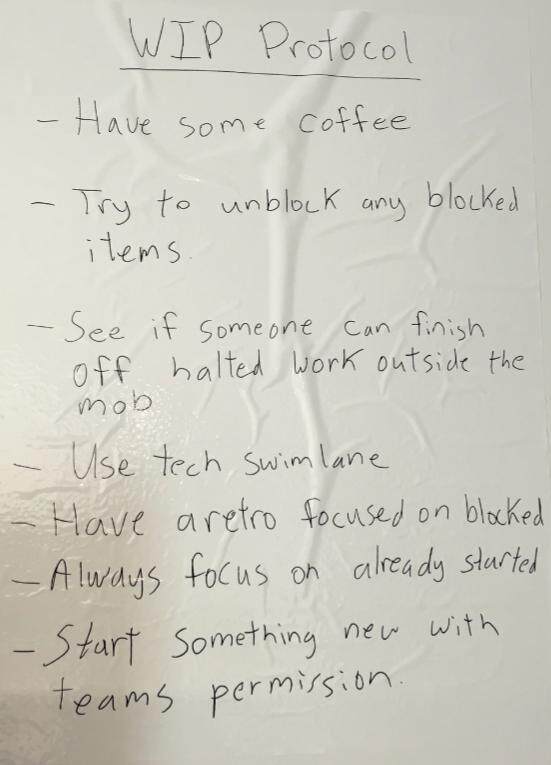 WIP Protocol
- Have some coffee
- Try to unblock any blocked
items.
- See if someone can finish
off halted work outside the
mob
- Use tech swimlane
- Have a retro focused on blocked
- Always focus on already started
- Start something new with
teams permission.